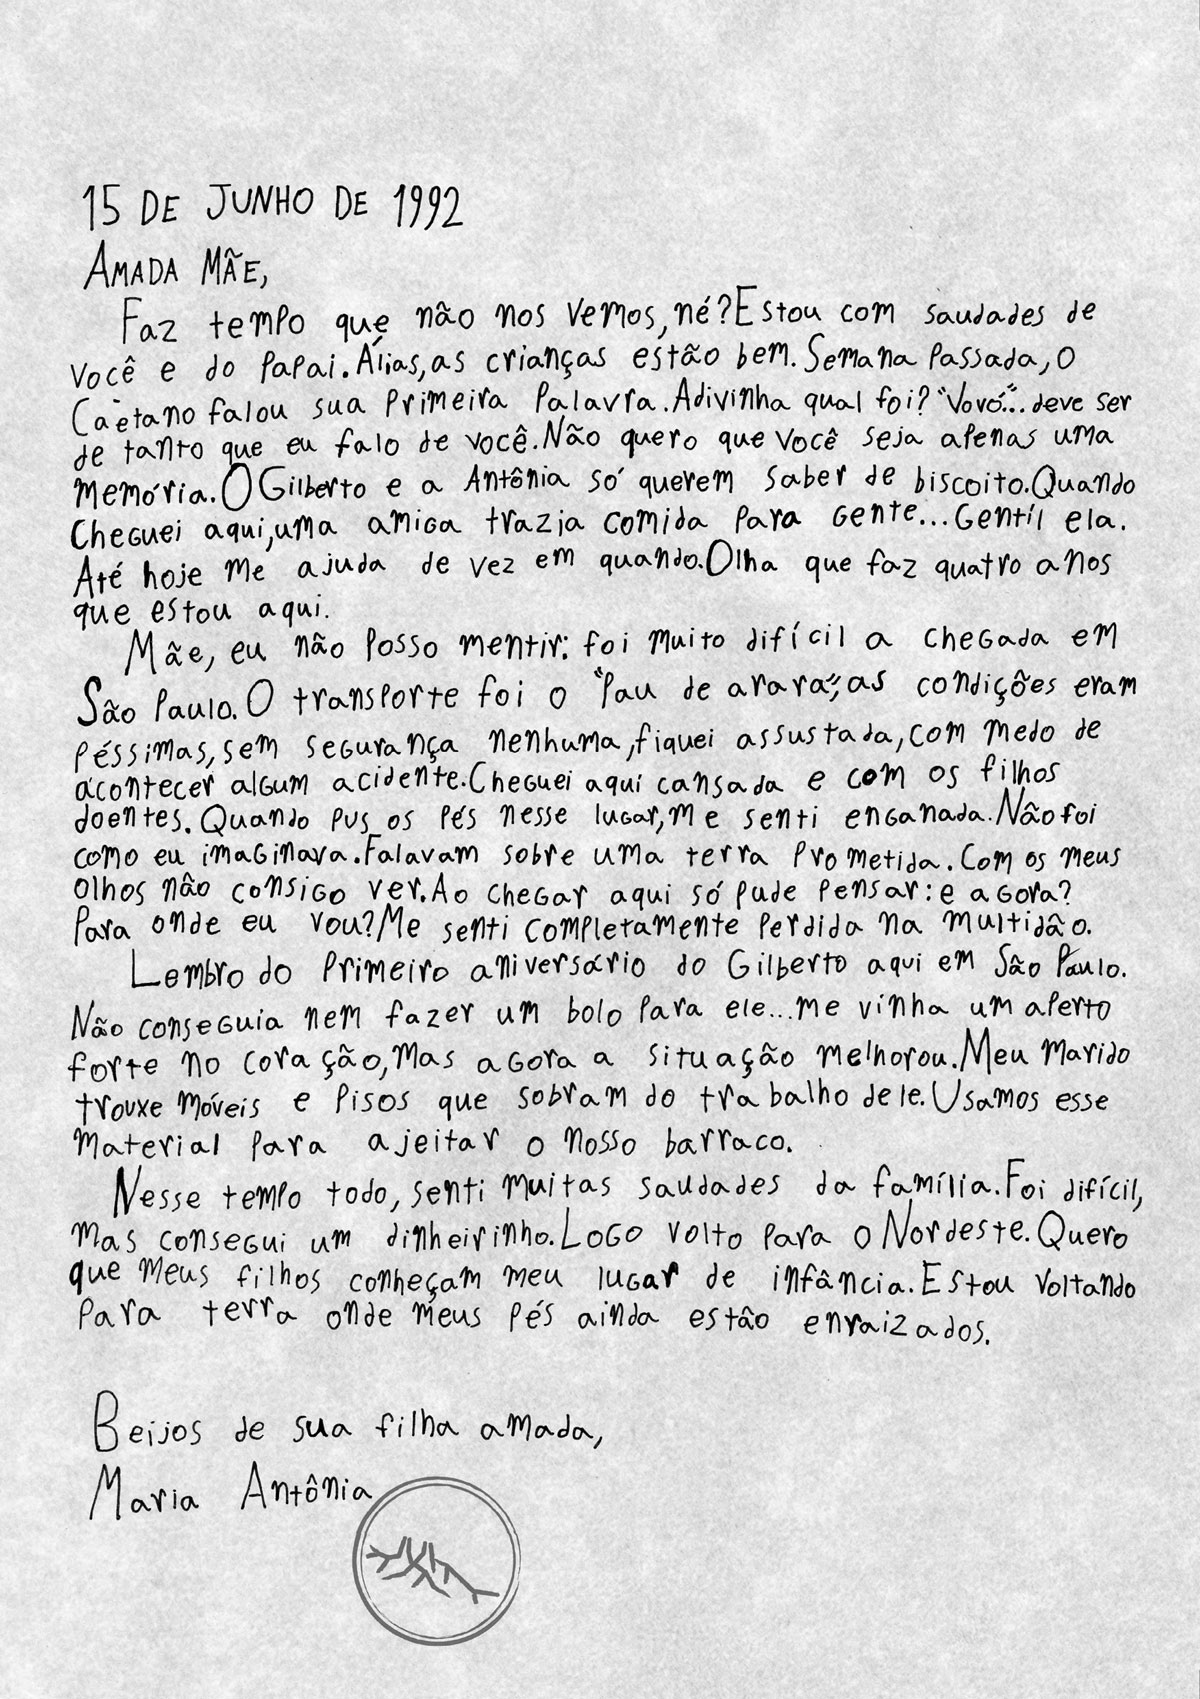 15 DE JUNHO DE 1992
AMADA MÃE,
Faz tempo que não nos vemos, né? Estou com saudades de
você e do papai. Álias, as crianças estão bem. Semana passada, o
Caetano falou sua primeira palavra. Adivinha qual foi? "Vovó"... deve ser
de tanto que eu falo de você. Não quero que você seja apenas uma
memória. O Gilberto e a Antônia só querem saber de biscoito. Quando
cheguei aqui, uma amiga trazia comida para gente... Gentil ela.
Até hoje me ajuda de vez em quando. Olha que faz quatro anos
que estou aqui.
Mãe, eu não posso mentir: foi muito difícil a chegada em
São Paulo. O transporte foi o "pau de arara", as condições eram
péssimas, sem segurança nenhuma, fiquei assustada, com medo de
acontecer algum acidente. Cheguei aqui cansada e com os filhos
doentes. Quando pus os pés nesse lugar, me senti enganada. Não foi
como eu imaginava. Falavam sobre uma terra prometida. Com os meus
olhos não consigo ver. Ao chegar aqui só pude pensar: e agora?
Para onde eu vou? Me senti completamente perdida na multidão.
Lembro do primeiro aniversário do Gilberto aqui em São Paulo.
Não conseguia nem fazer um bolo para ele... me vinha um aperto
forte no coração, mas agora a situação melhorou. Meu marido
trouxe móveis e pisos que sobram do trabalho dele. Usamos esse
material para ajeitar o nosso barraco.
Nesse tempo todo, senti muitas saudades da família. Foi difícil,
mas consegui um dinheirinho. Logo volto para o Nordeste. Quero
que meus filhos conheçam meu lugar de infância. Estou voltando
para terra onde meus pés ainda estão enraizados.
Beijos de sua filha amada,
Maria Antônia